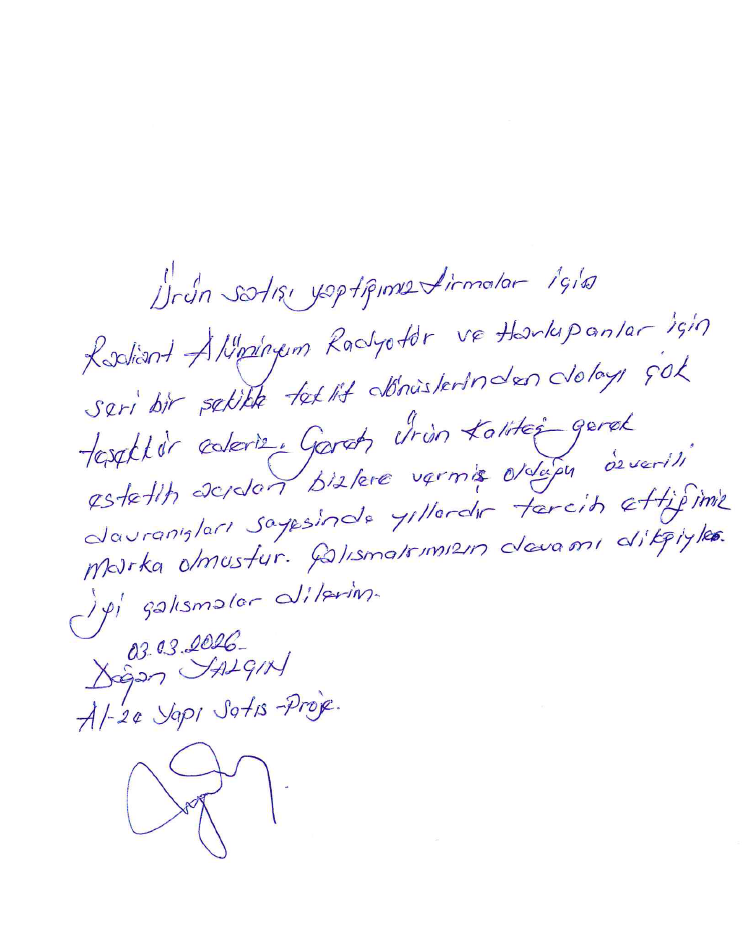 Ürün satışı yaptığımız firmalar için
Radiant Alüminyum Radyotör ve Havlupanlar için
seri bir şekilde teklif dönüşlerinden dolayı çok
teşekkür ederiz. Gerek ürün kalitesi gerek
estetik açıdan bizlere vermiş olduğu özverili
davranışları sayesinde yıllardır tercih ettiğimiz
Marka olmuştur. Çalışmalarımızın devamı dileğiyle.
İyi çalışmalar dilerim.
03.03.2026
Doğan YALÇIN
Al-ze Yapı Satış-Proje.